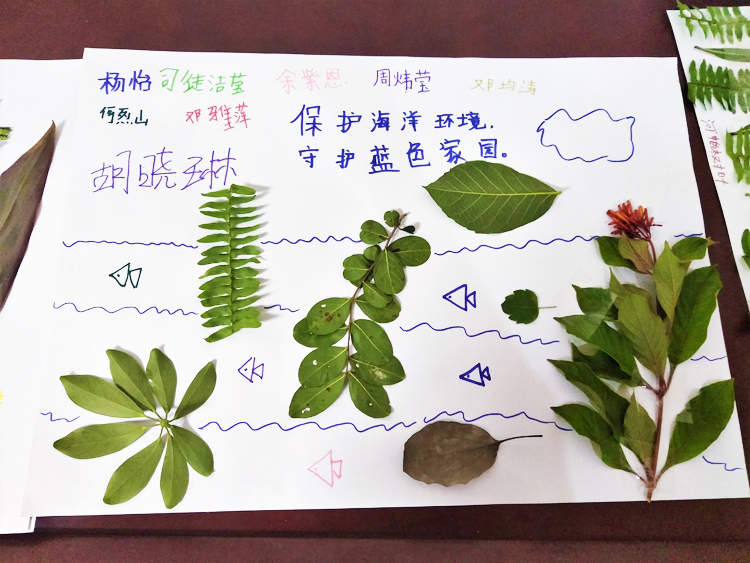 杨怡 司徒洁莹 余紫恩 周炜莹 邓均涛
何烈山 邓雅萍
保护海洋环境,
守护蓝色家园。
胡晓琳